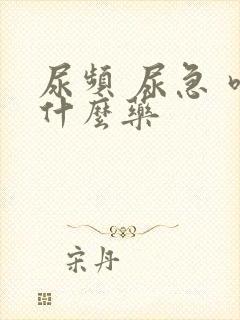 尿頻 尿急
什麼藥
宋丹